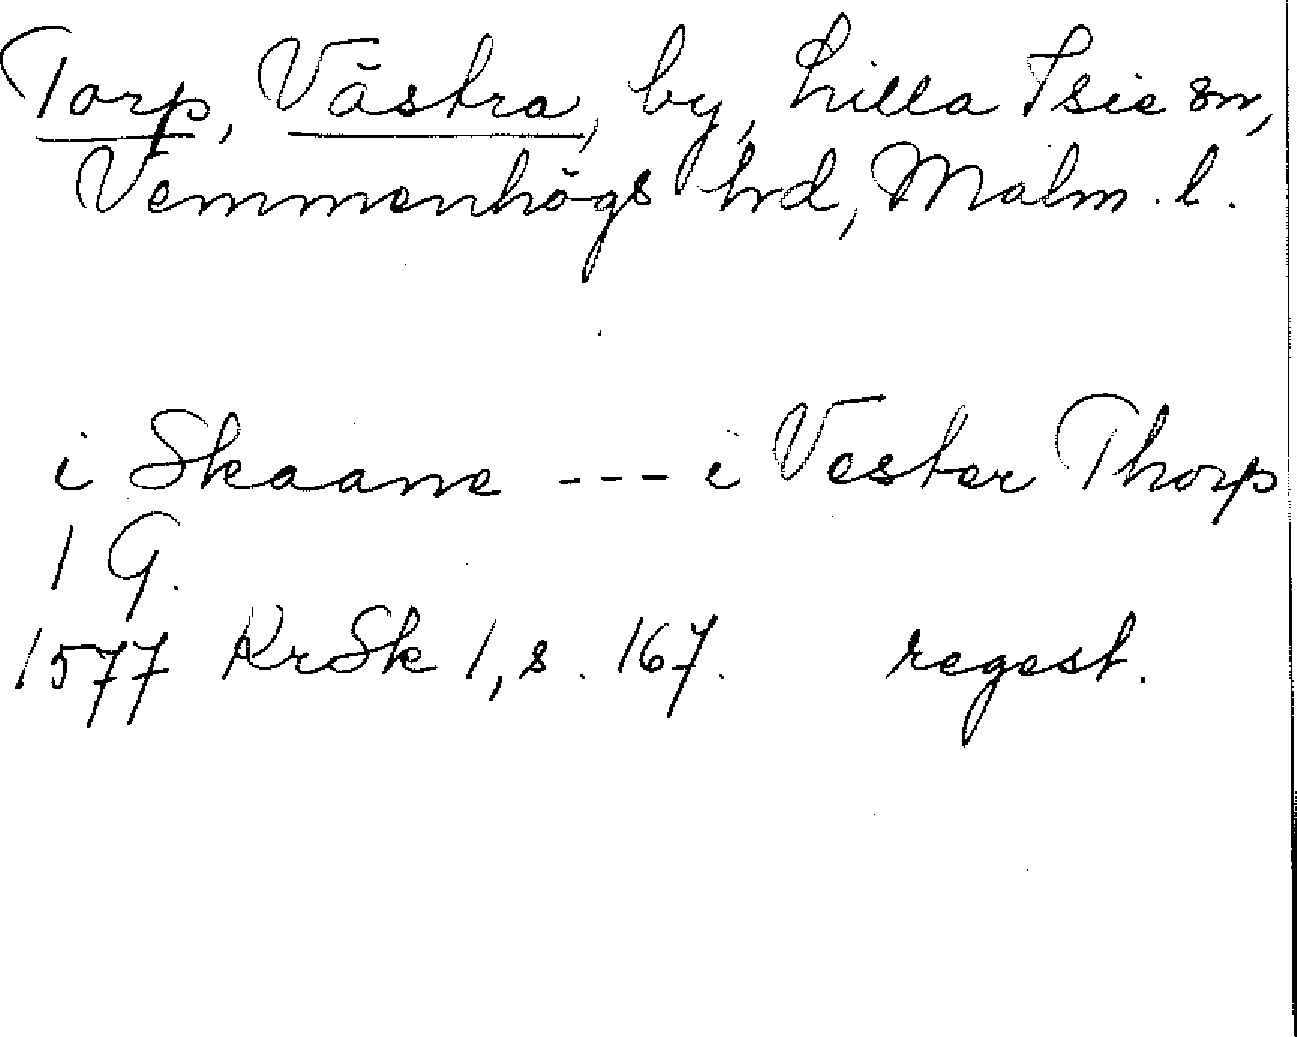 Torp, Västra, by, Lilla Isie sn,
Vemmenhögs hrd, Malm. l.
i Skaane --- i Vester Thorp
1 G.
1577 KrSk 1, s. 167. regest.